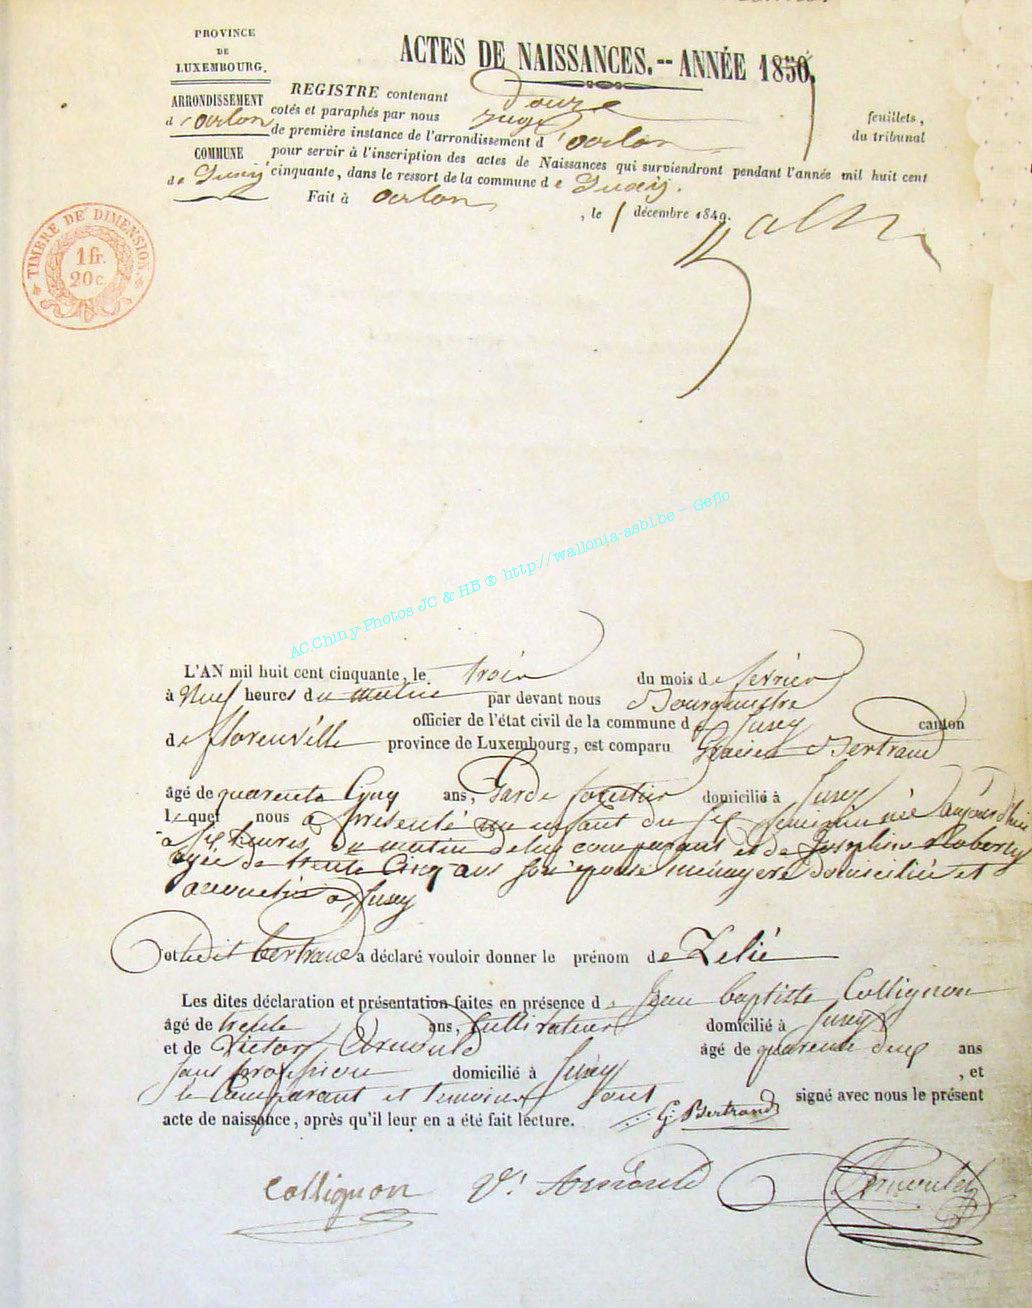 PROVINCE
DE
LUXEMBOURG.
ARRONDISSEMENT
d'arlon
COMMUNE
de Suxy
ACTES DE NAISSANCES.-- ANNÉE 1850.
REGISTRE contenant Douze feuillets,
cotés et paraphés par nous juge du tribunal
de première instance de l'arrondissement d'arlon
pour servir à l'inscription des actes de Naissances qui surviendront pendant l'année mil huit cent
cinquante, dans le ressort de la commune de Suxy.
Fait à arlon, le 1 décembre 1849.
TIMBRE DE DIMENSION.
1 fr.
20 c.
AC Chiny-Photos JC & HB © http://wallonia-asbl.be - Geflo
L'AN mil huit cent cinquante, le trois du mois de fevrier
à Neuf heures du matin par devant nous Bourgmestre
officier de l'état civil de la commune de Suxy canton
de florenville province de Luxembourg, est comparu Bertrand
âgé de quarente Cinq ans, Garde forestier domicilié à Suxy
lequel nous a présenté un enfant du sexe feminin née aujourd'hui
à six heures du matin de lui comparant et de Josephine Roberty
agée de trente Cinq ans son epouse ménagere domiciliée et
accouchée a Suxy
et ledit bertrand a déclaré vouloir donner le prénom de Zelié
Les dites déclaration et présentation faites en présence de Jean baptiste Collignon
âgé de trente ans, Cultivateur domicilié à Suxy
et de Victor Arnould âgé de quarente deux ans
sans profession domicilié à Suxy, et
le Comparant et temoins sont signé avec nous le présent
acte de naissance, après qu'il leur en a été fait lecture. G. Bertrand
Collignon V.r Arnould Arnould